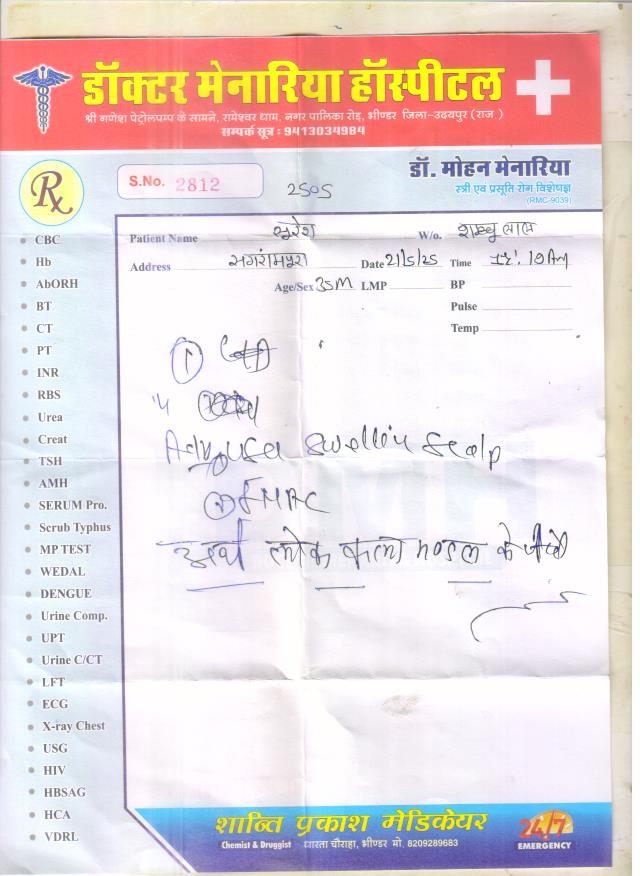 डॉक्टर मेनारिया हॉस्पीटल
श्री गणेश पेट्रोलपम्प के सामने, रामेश्वर धाम, नगर पालिका रोड़, भीण्डर जिला-उदयपुर (राज.)
सम्पर्क सूत्र : 9413034984
डॉ. मोहन मेनारिया
स्त्री एवं प्रसूति रोग विशेषज्ञ
(RMC-9039)
Rx
S.No. 2812
2505
Patient Name सुरेश W/o. शम्भु लाल
Address सगरामपुरा Date 21/5/25 Time
Age/Sex 35M LMP BP
Pulse
Temp
CBC
Hb
AbORH
BT
CT
PT
INR
RBS
Urea
Creat
TSH
AMH
SERUM Pro.
Scrub Typhus
MP TEST
WEDAL
DENGUE
Urine Comp.
UPT
Urine C/CT
LFT
ECG
X-ray Chest
USG
HIV
HBSAG
HCA
VDRL
1
swelling scalp
FNAC
लोक कला मण्डल के
शान्ति प्रकाश मेडिकेयर
Chemist & Druggist धारता चौराहा, भीण्डर मो. 8209289683
24/7
EMERGENCY